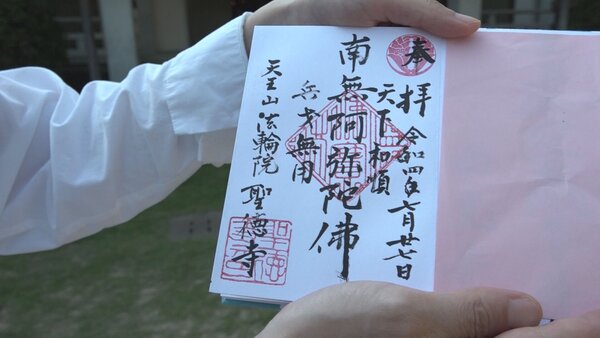 奉拝
令和四年七月廿七日
天下和順
南無阿弥陀佛
兵戈無用
天王山法輪院聖徳寺